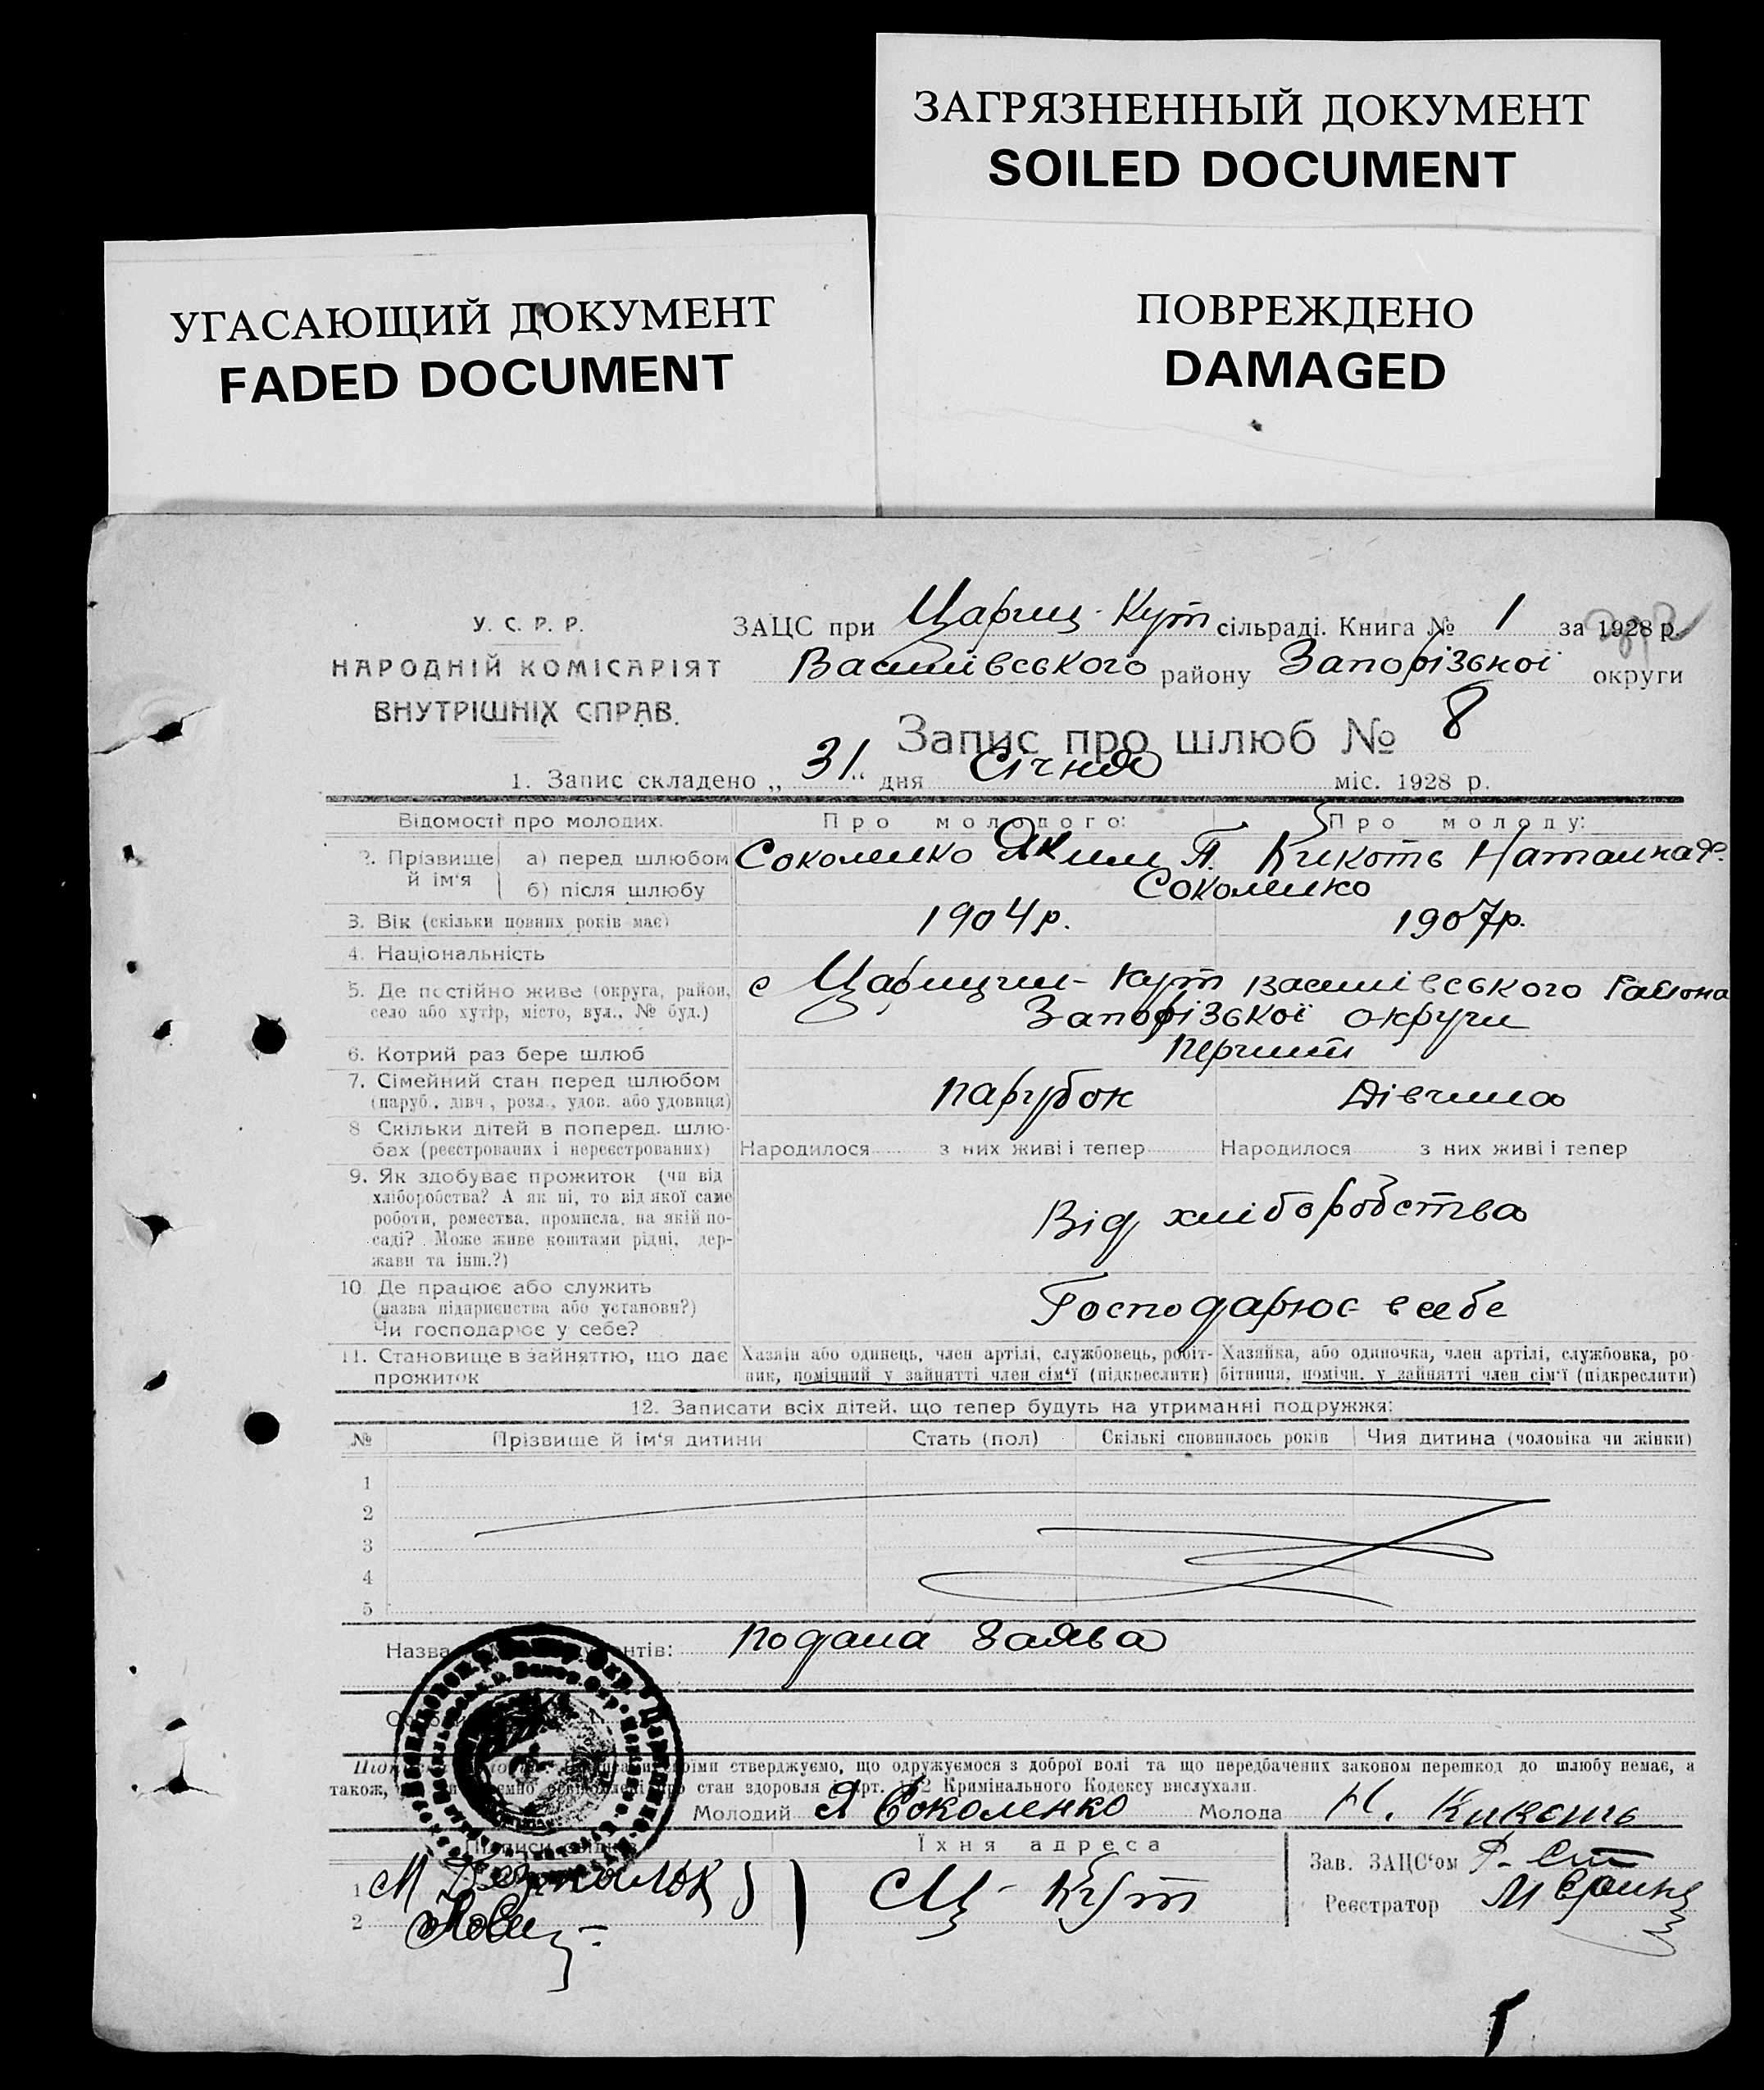 ЗАГРЯЗНЕННЫЙ ДОКУМЕНТ
SOILED DOCUMENT
УГАСАЮЩИЙ ДОКУМЕНТ
FADED DOCUMENT
ПОВРЕЖДЕНО
DAMAGED
У. С. Р. Р.
НАРОДНІЙ КОМІСАРІЯТ
ВНУТРІШНІХ СПРАВ.
ЗАЦС при Цариц-Кут сільраді. Книга № 1 за 1928 р.
Василівського району Запорізької округи
Запис про шлюб № 8
1. Запис складено „ 31 " дня Січня міс. 1928 р.
Відомості про молодих. Про молодого: Про молоду:
2. Прізвище й ім'я а) перед шлюбом Соколенко Яким П. Кикоть Наталка
б) після шлюбу Соколенко
3. Вік (скільки повних років має) 1904 р. 1907 р.
4. Національність
5. Де постійно живе (округа, район, с Царицин-Кут Василівського Района
село або хутір, місто, вул., № буд.) Запорізької округи
6. Котрий раз бере шлюб перший
7. Сімейний стан перед шлюбом парубок Дівчина
(паруб., дівч., розл., удов. або удовиця)
8 Скільки дітей в поперед. шлю-
бах (реєстрованих і нереєстрованих) Народилося з них живі і тепер Народилося з них живі і тепер
9. Як здобуває прожиток (чи від
хліборобства? А як ні, то від якої саме
роботи, ремества, промисла, на якій по- Від хліборобства
саді? Може живе коштами рідні, дер-
жави та інш.?)
10 Де працює або служить
(назва підприємства або установи?) Господарює в себе
Чи господарює у себе?
11. Становище в зайняттю, що дає Хазяїн або одинець, член артілі, службовець, робіт- Хазяйка, або одиночка, член артілі, службовка, ро-
прожиток ник, помічний у зайнятті член сім'ї (підкреслити) бітниця, помічн. у зайнятті член сім'ї (підкреслити)
12. Записати всіх дітей, що тепер будуть на утриманні подружжя:
№ Прізвище й ім'я дитини Стать (пол) Скількі сповнилось років Чия дитина (чоловіка чи жінки)
1
2
3
4
5
Назва подана заява
стверджуємо, що одружуємося з доброї волі та що передбачених законом перешкод до шлюбу немає, а
також, про стан здоровля і арт. Кримінального Кодексу вислухали.
Молодий Я Соколенко Молода Н. Кикоть
Їхня адреса
Зав. ЗАЦС'ом
1 М
Ц-Кут
Реєстратор
2